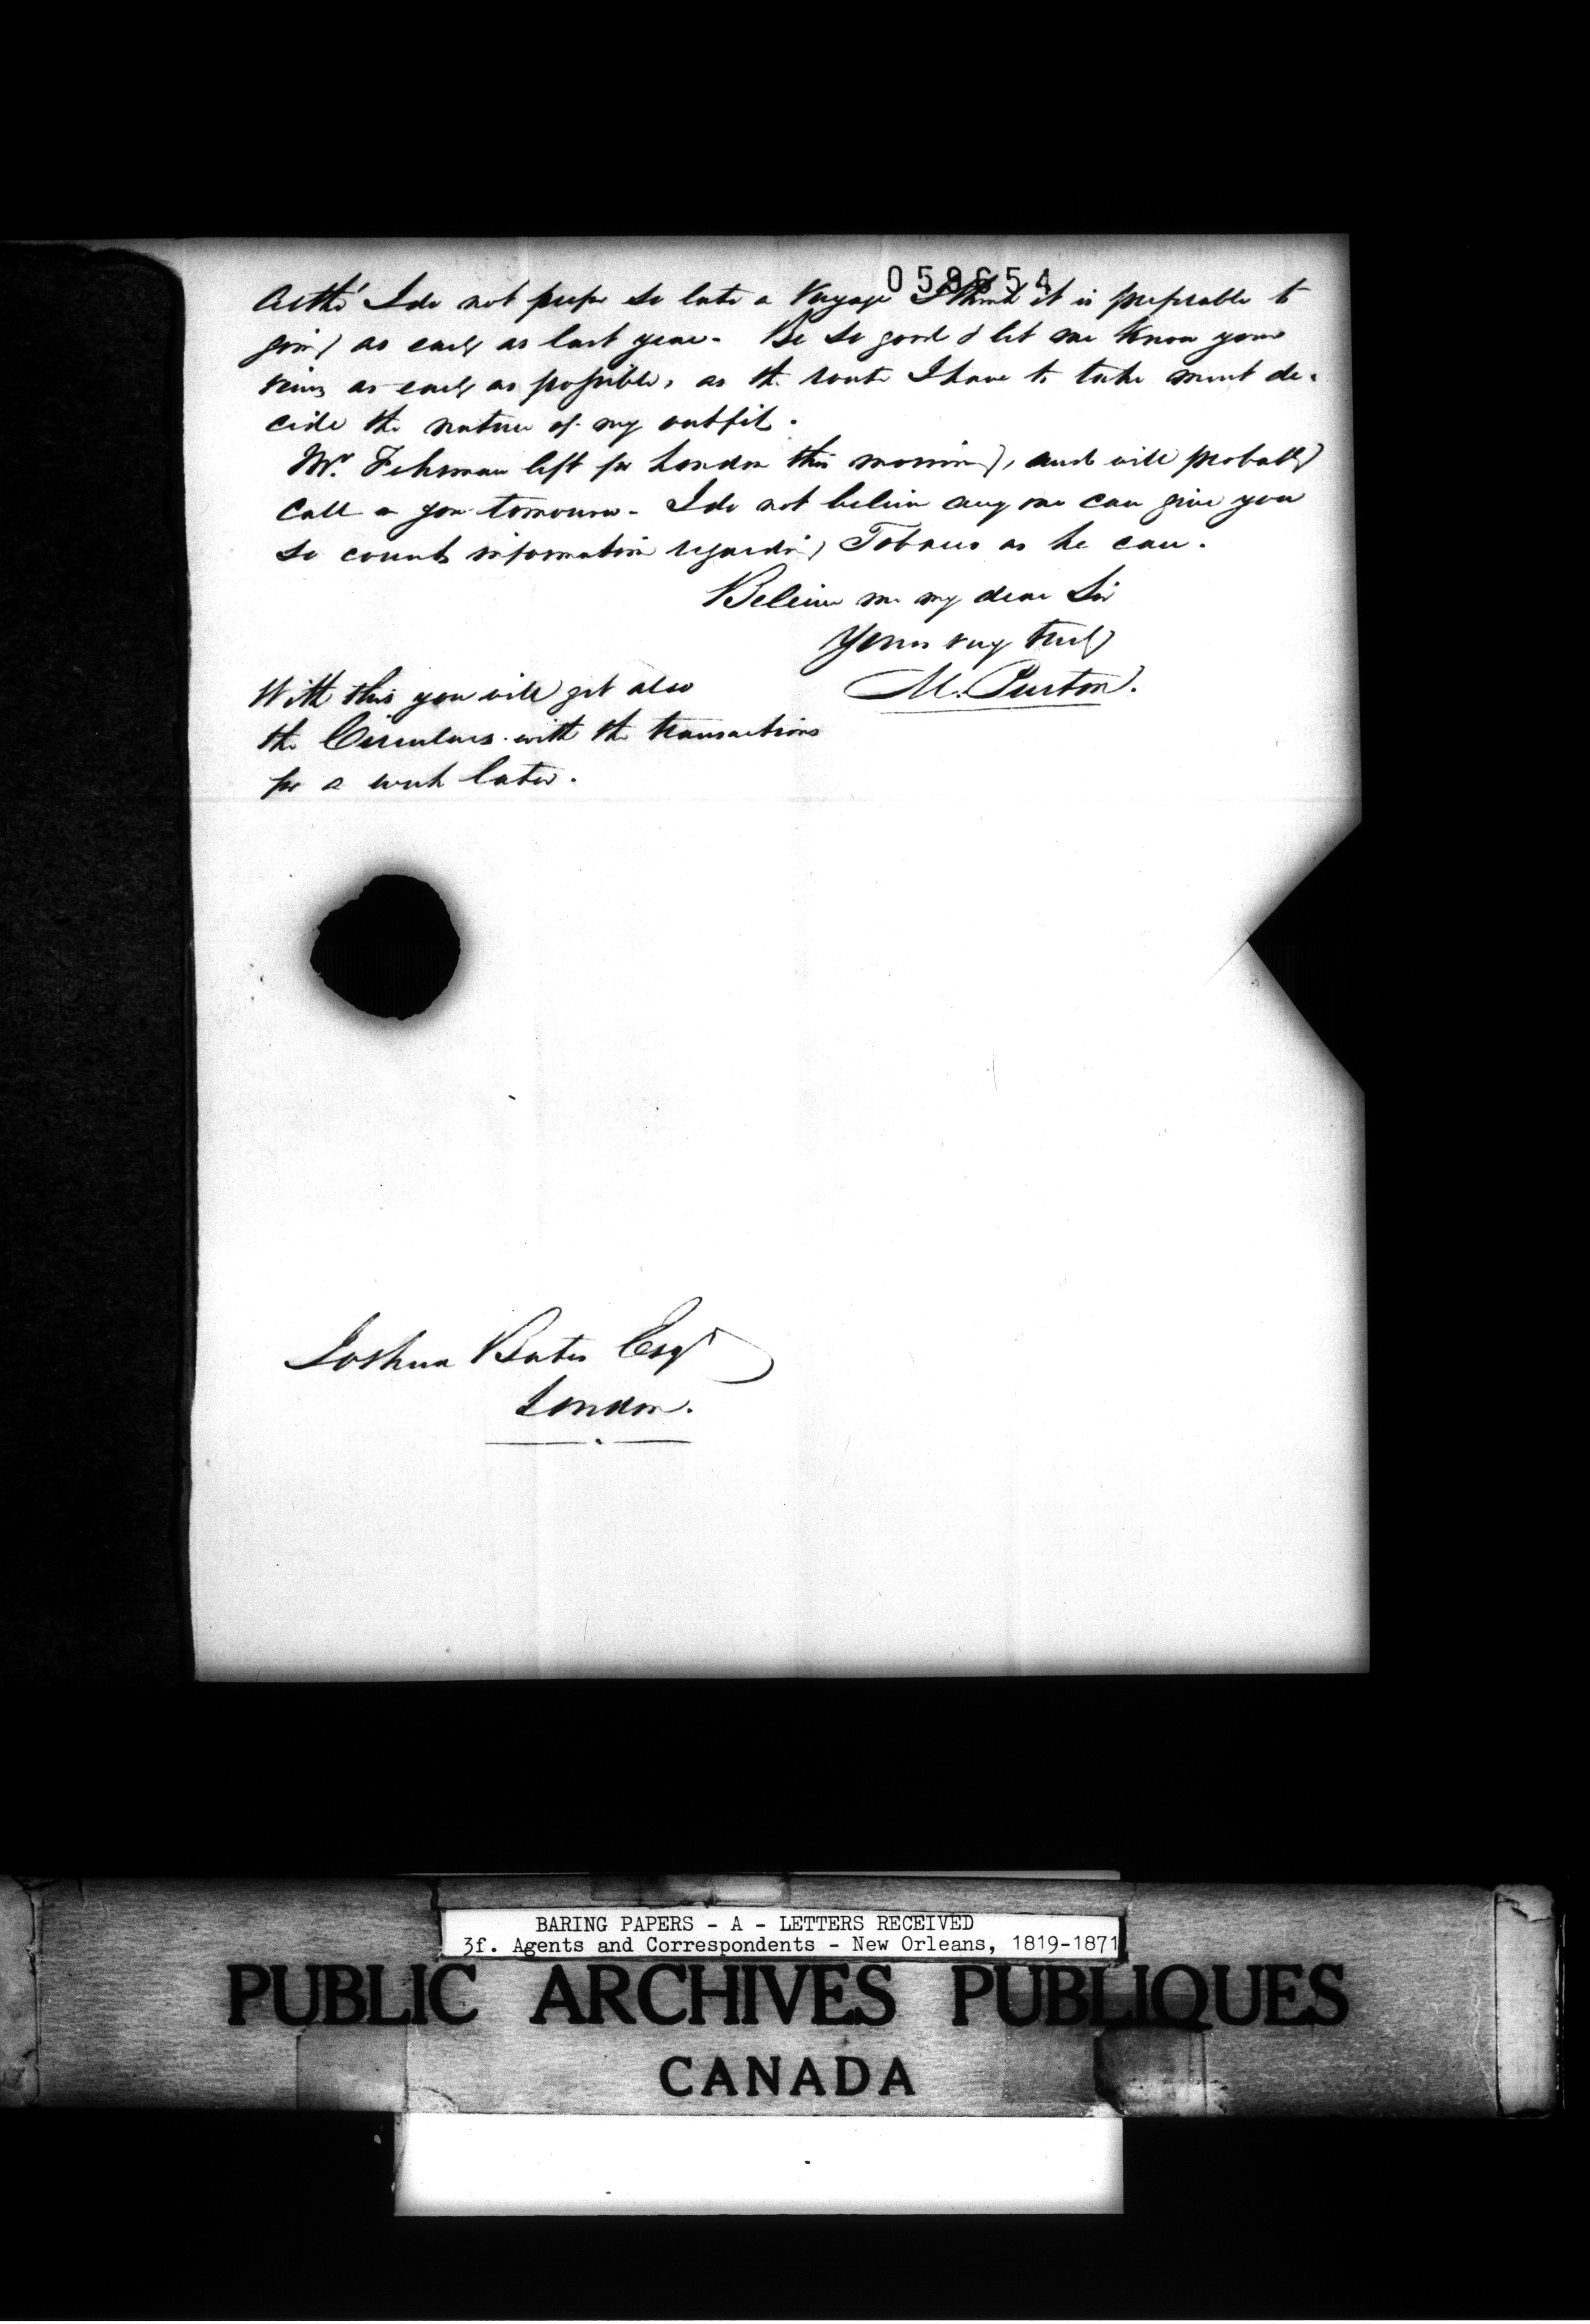 059654
Altho' I do not prefer so late a Voyage I think it is preferable to
going as early as last year. Be so good & let me know your
views as early as possible, as the route I have to take must de-
cide the nature of my outfit.
Mr left for London this morning, and will probably
call on you tomorrow. I do not believe any one can give you
so correct information regarding Tobacco as he can.
Believe me my dear Sir
Yours very truly
M. Purton.
With this you will get also
the Circulars with the transactions
for a week later.
Joshua Bates Esqr
London.
BARING PAPERS - A - LETTERS RECEIVED
3f. Agents and Correspondents - New Orleans, 1819-1871
PUBLIC ARCHIVES PUBLIQUES
CANADA